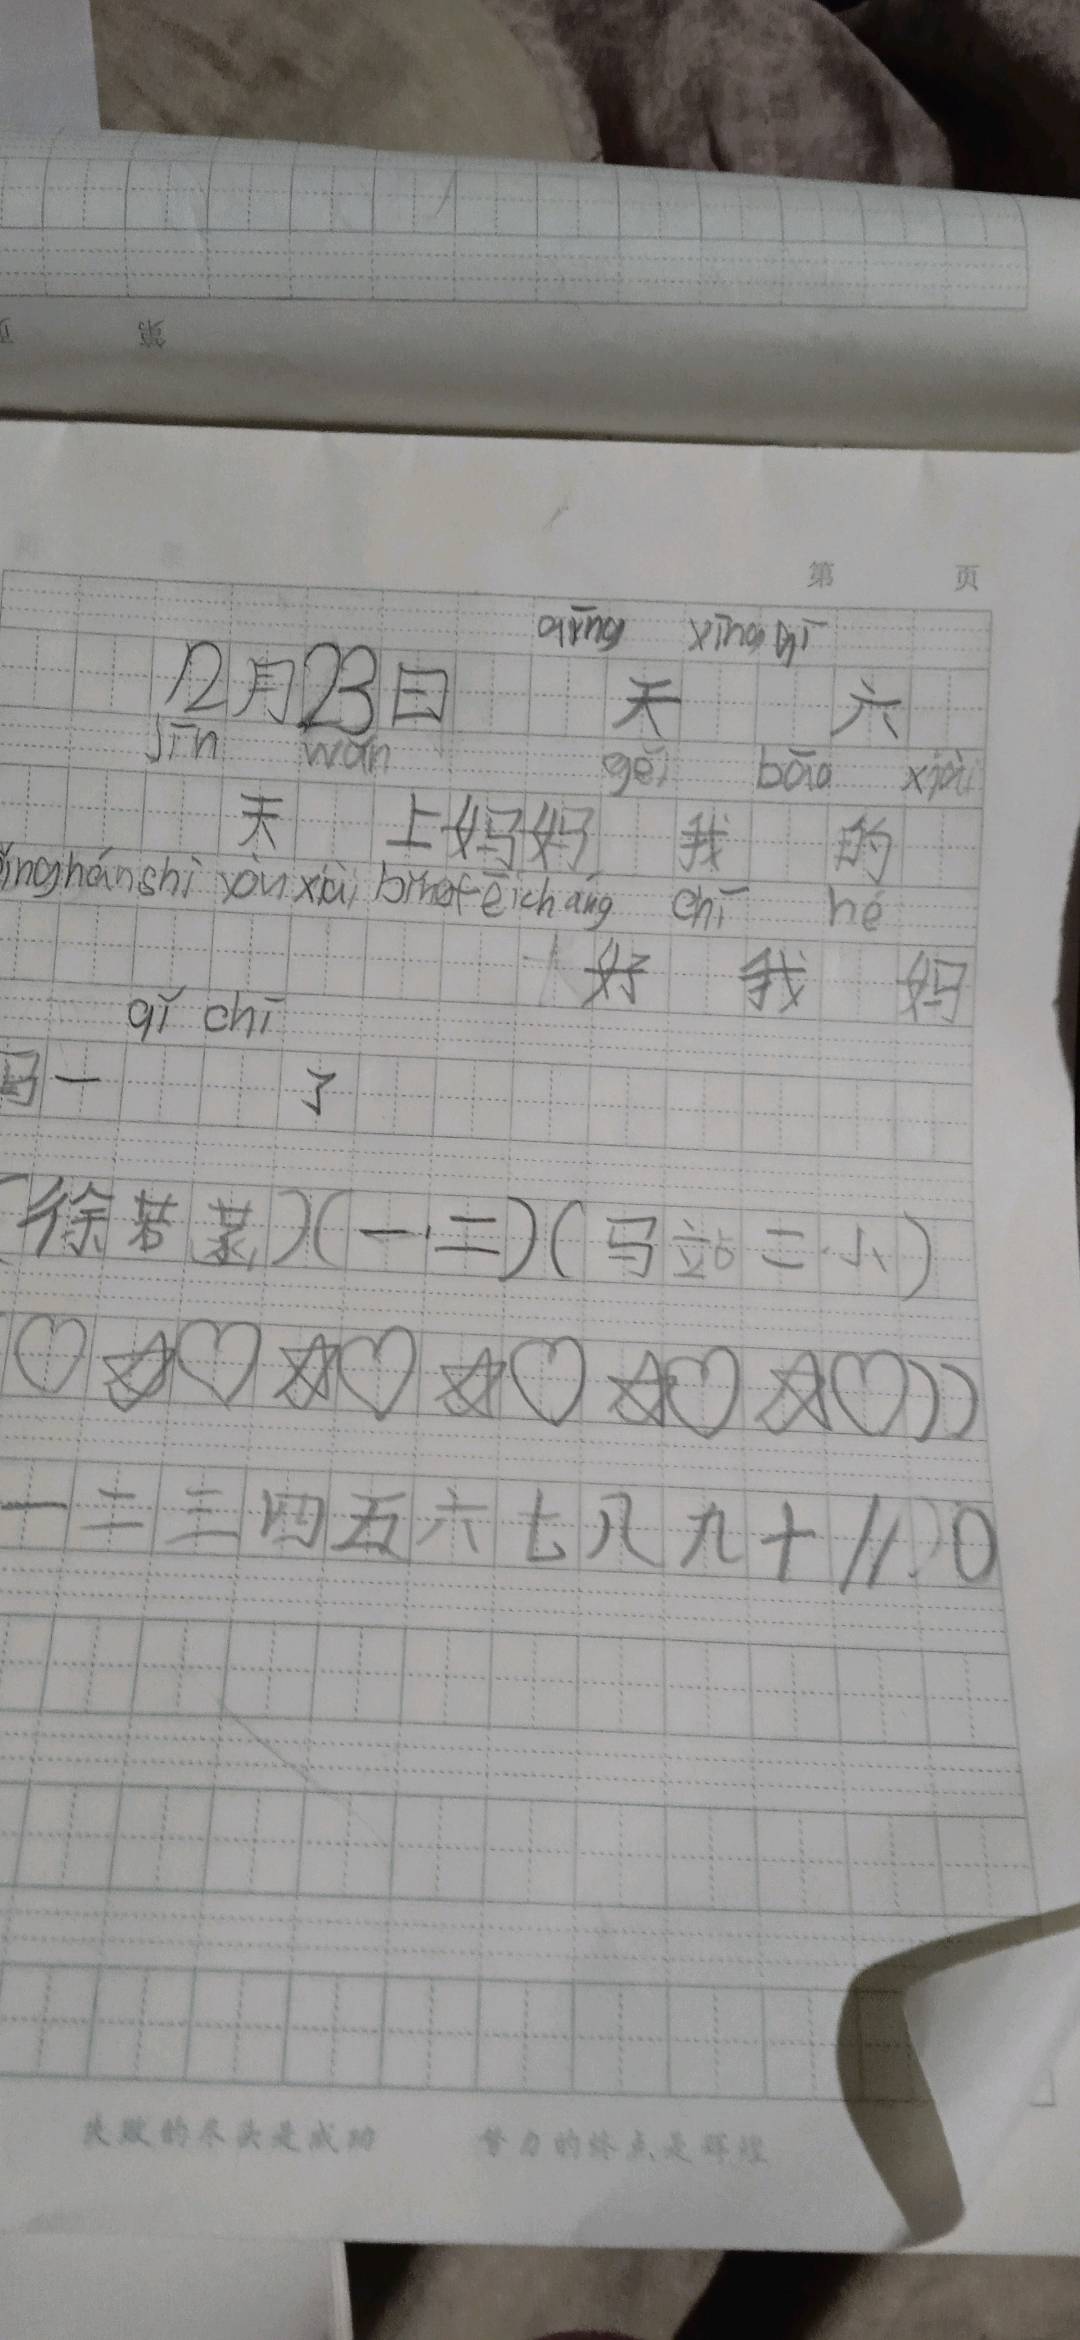 第 页
qīng xīng qī
12月23日 天 六
jīn wǎn gěi bāo xiàn
天 上妈妈 我 的
xiàn fēicháng chī hé
好 我 妈
qǐ chī
马一 了
(徐若菉)(一.二)(马站二小)
一二三四五六七八九十 0
失败的尽头是成功 努力的终点是辉煌